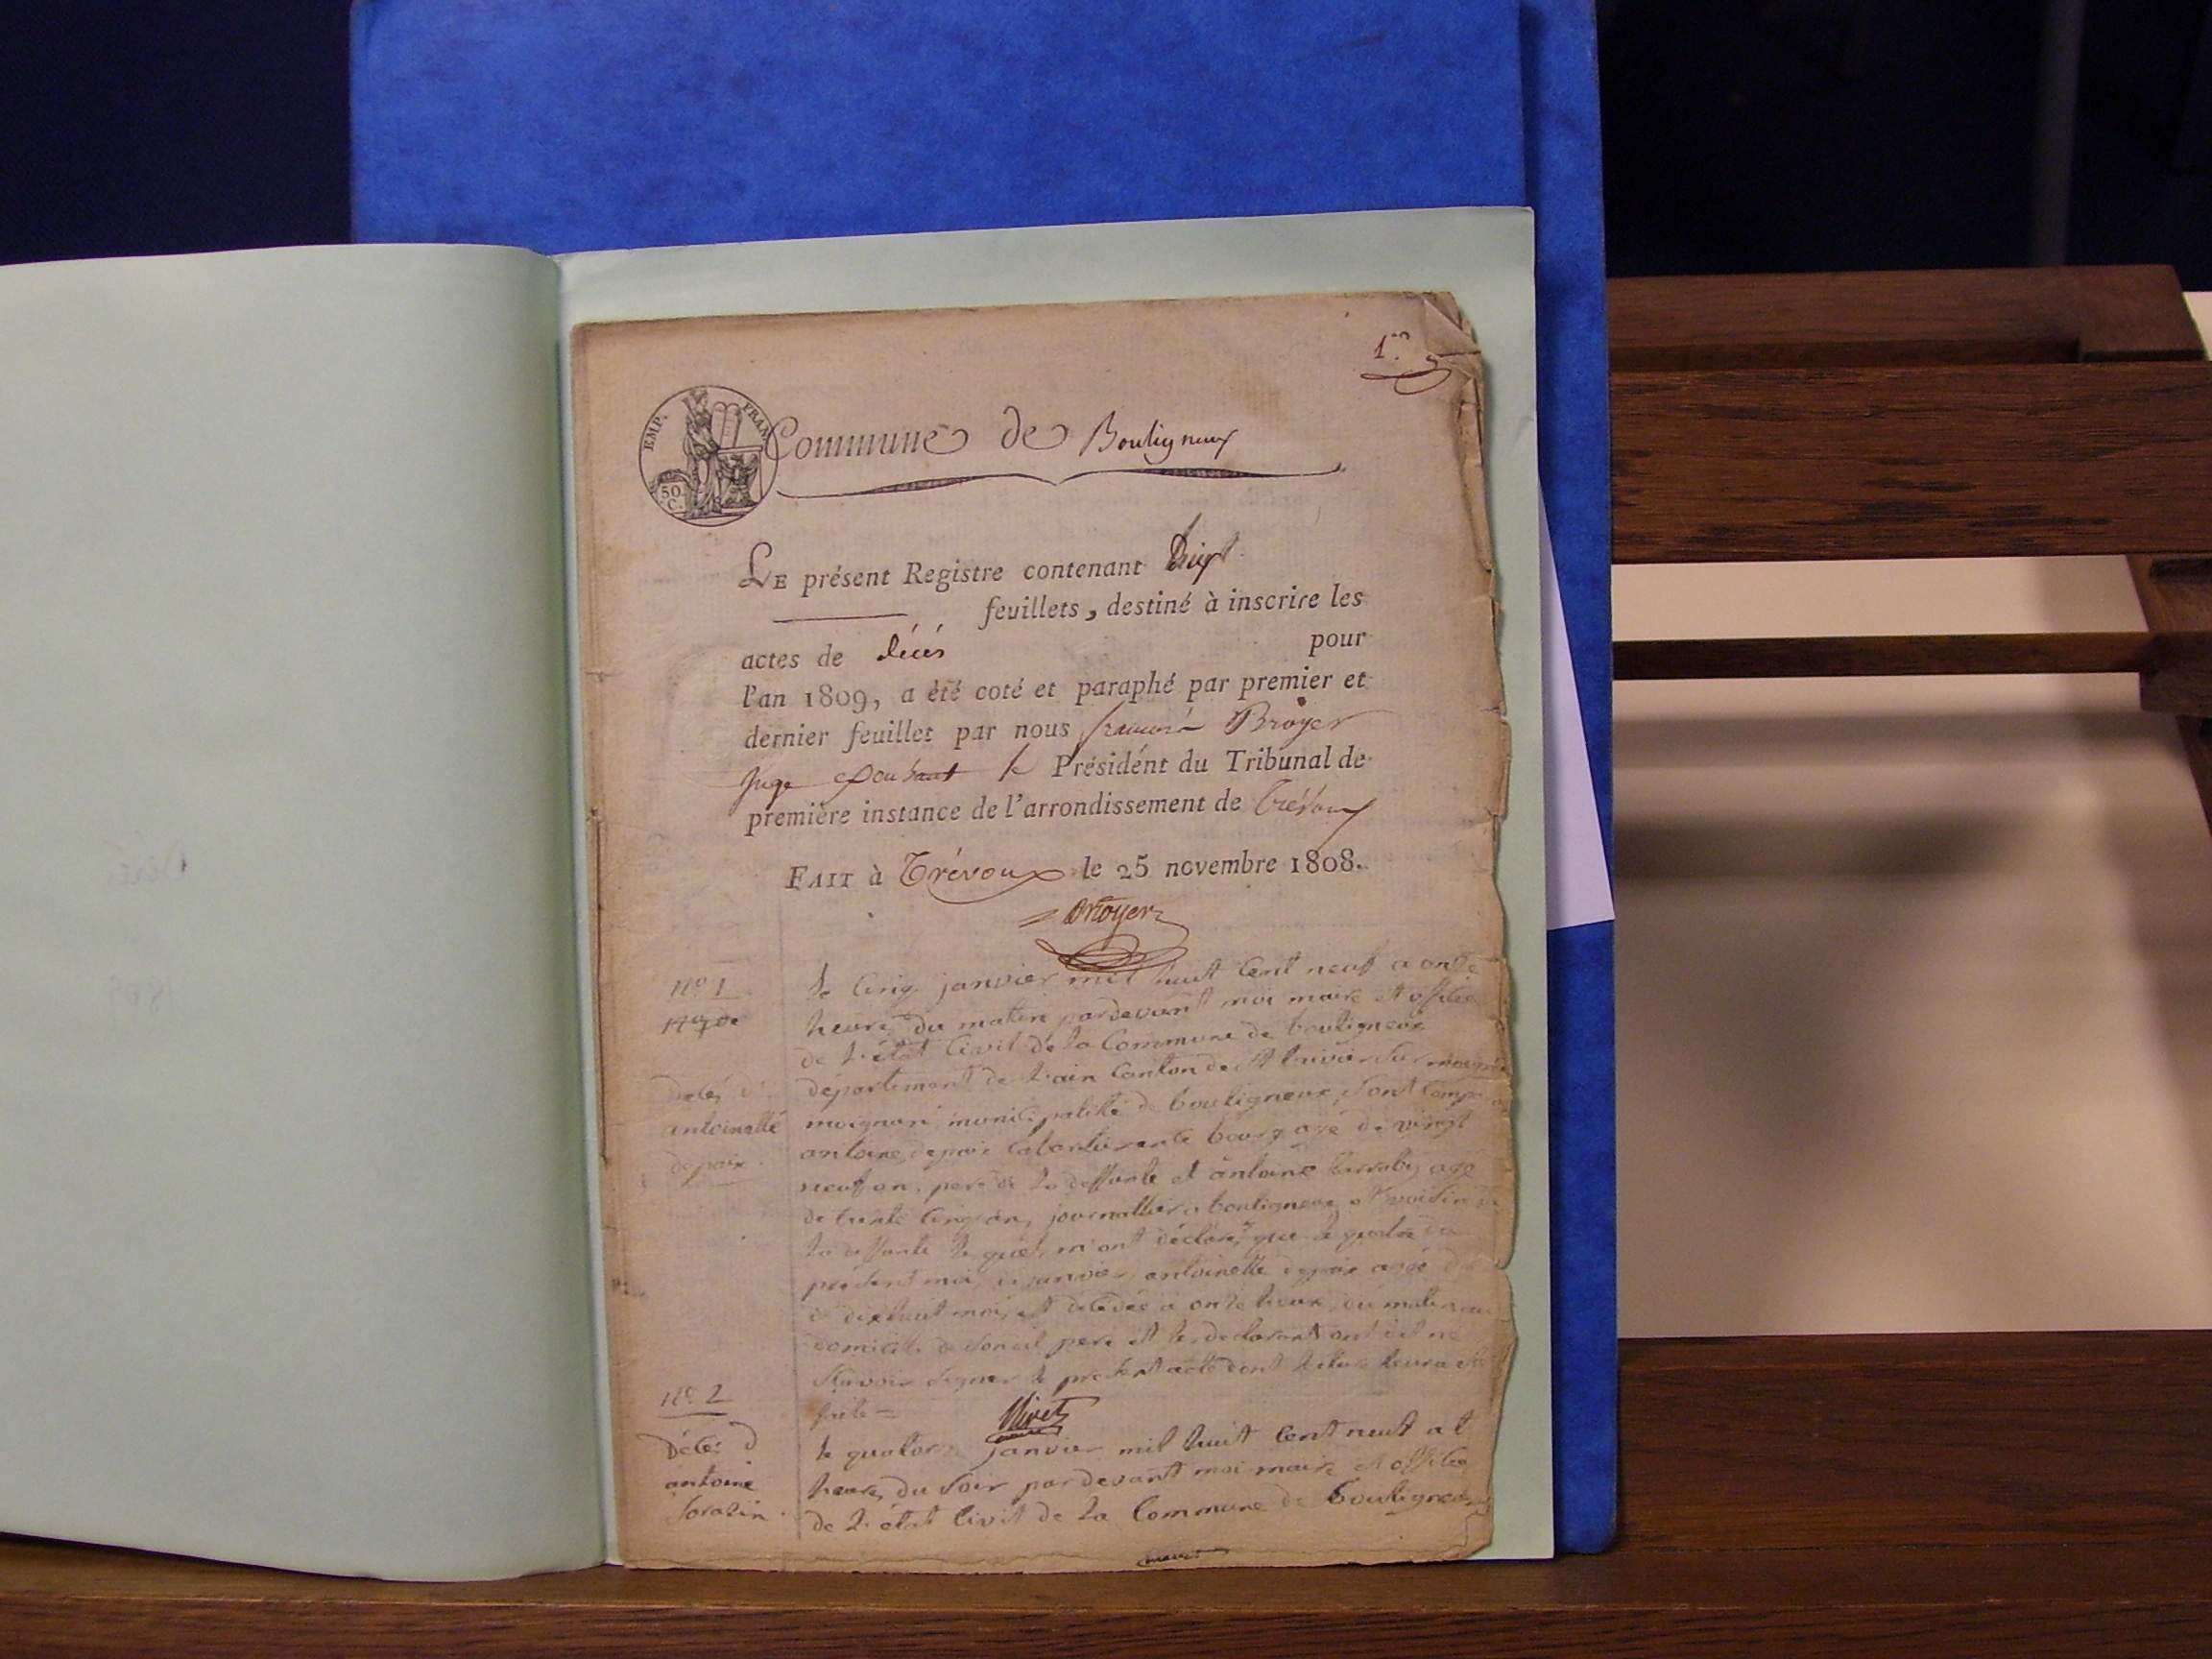 1.er
EMP. FRAN.
50 C.
Commune de Bouligneux
LE présent Registre contenant huit
feuillets, destiné à inscrire les
actes de décés pour
l'an 1809, a été coté et paraphé par premier et
dernier feuillet par nous Broyer
Juge le Présidént du Tribunal de
première instance de l'arrondissement de Trévoux
FAIT à Trévoux le 25 novembre 1808.
Broyer
n.o 1
le cinq janvier mil huit cent neuf a onze
heure du matin pardevant moi maire et officier
de l'état civil de la Commune de bouligneux
Décés d
département de l'ain Canton de St
antoinette
municipalité de bouligneux, sont
depaix
antoine depaix age de vingt
neuf an, pere de la deffunte et antoine age
de trente cinq an, journallier a bouligneux et voisin
la deffunte le quel m'ont déclaré que le quatre du
présent moi de janvier antoinette depaix agé
de dixhuit moi est décédée a onze heure du matin au
domicile de son pere et les declarant ont dit ne
signer le present acte dont lecture leur a été
faite =
n.o 2
Décés d
le quatorze janvier mil huit cent neuf a
antoine
heure du soir pardevant moi maire et officier
sorazin
de l'état civil de la Commune de bouligneux